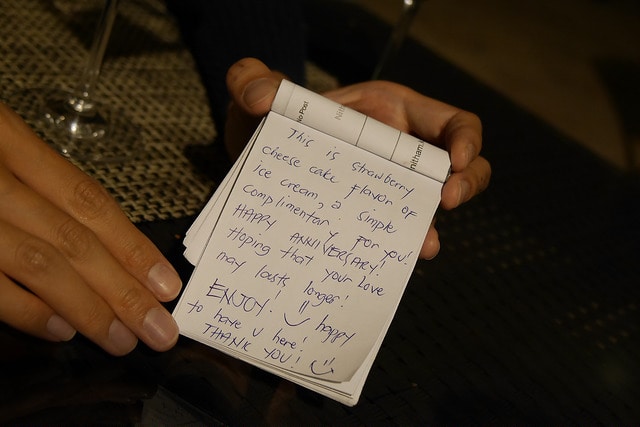 This is strawberry
cheese cake flavor of
ice cream, a simple
complimentary for you!
HAPPY ANNIVERSARY!
Hoping that your Love
may lasts longer!
ENJOY! happy
to have u here!
THANK YOU!